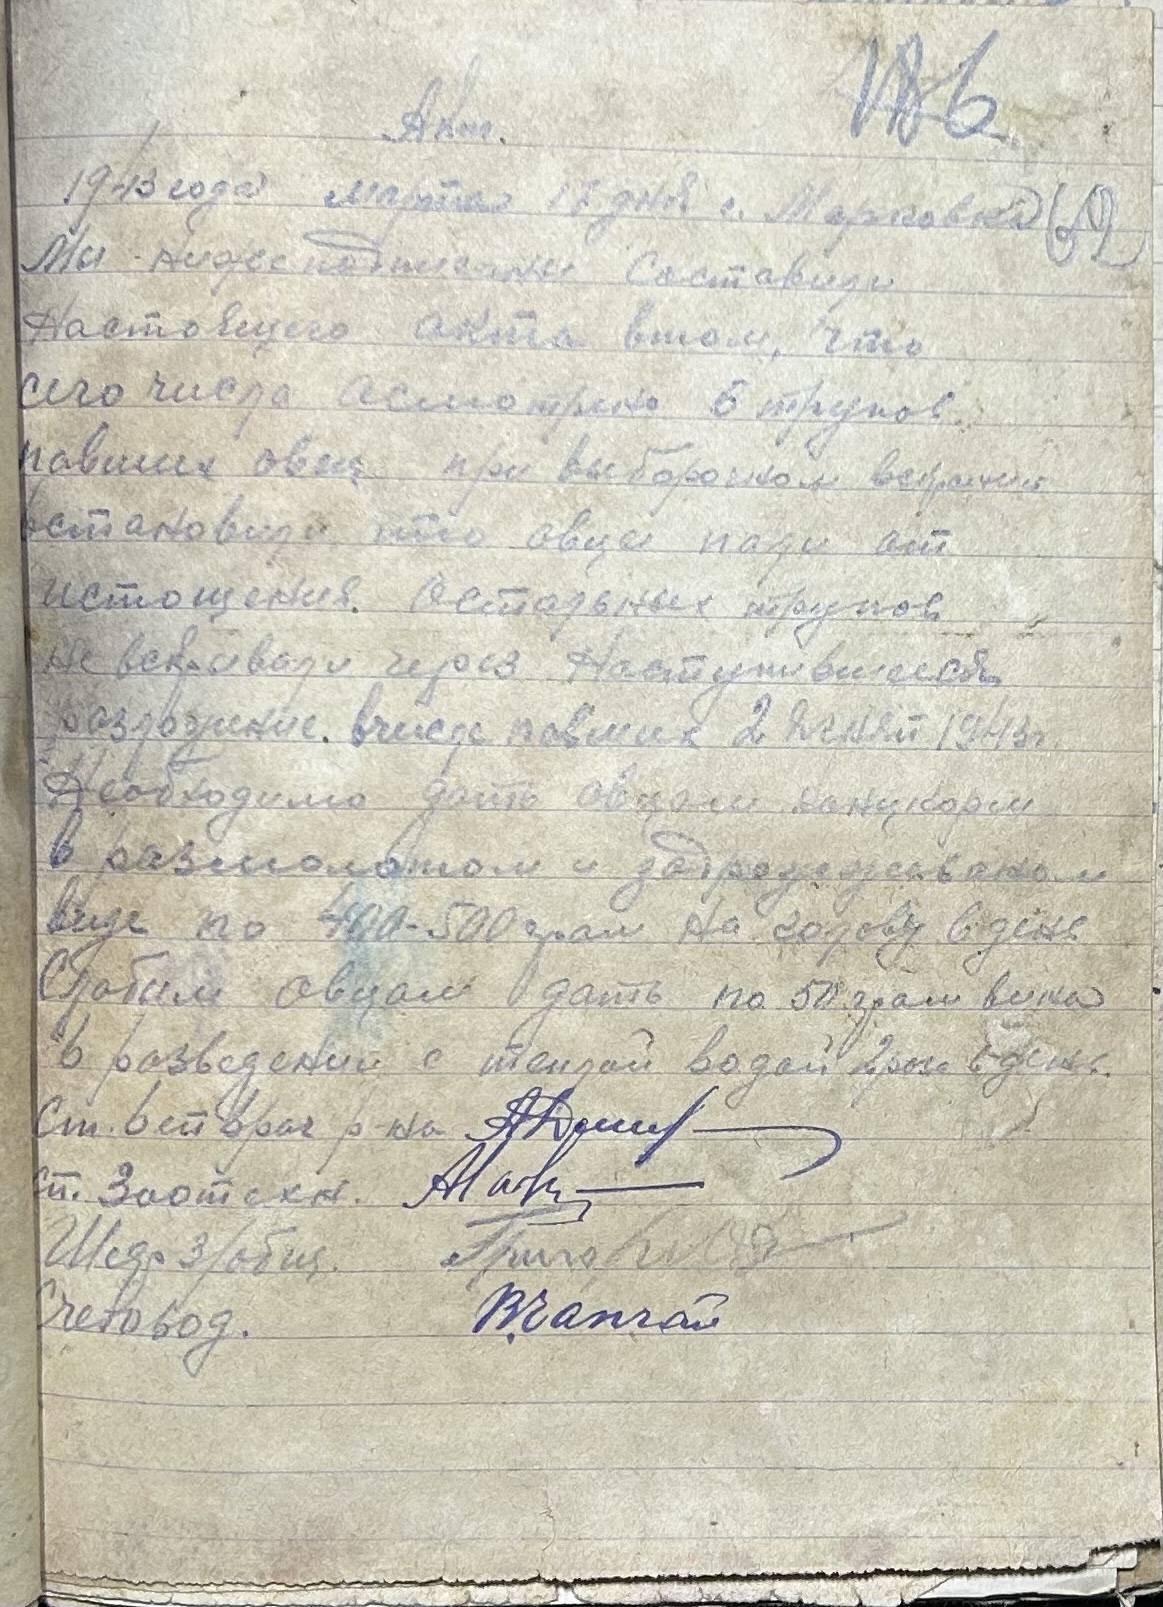 186
Акт.
1943 года марта 17 дня с. Марковка
62
Мы нидеподписани составили
Настоящего акта втом, что
сего числа осмотрино 6 трупов
павших овец при выборочном вскрытии
встановили что овци пали от
истощения. Остальных трупов
не вскривали через Наступившееся
разложение. вчисле павших 2 ягняти 1943 г.
Необходимо дать овцам концкорм
в размолотом и задрожжеваном
виде по 400-500 грам на голову в день
Слабим овцам дать по 50 грам вина
в разведении с теплой водой 2 раза в день.
Ст. Ветврач р-на
ст. Зоотехн.
Счетовод. В. Чапчай